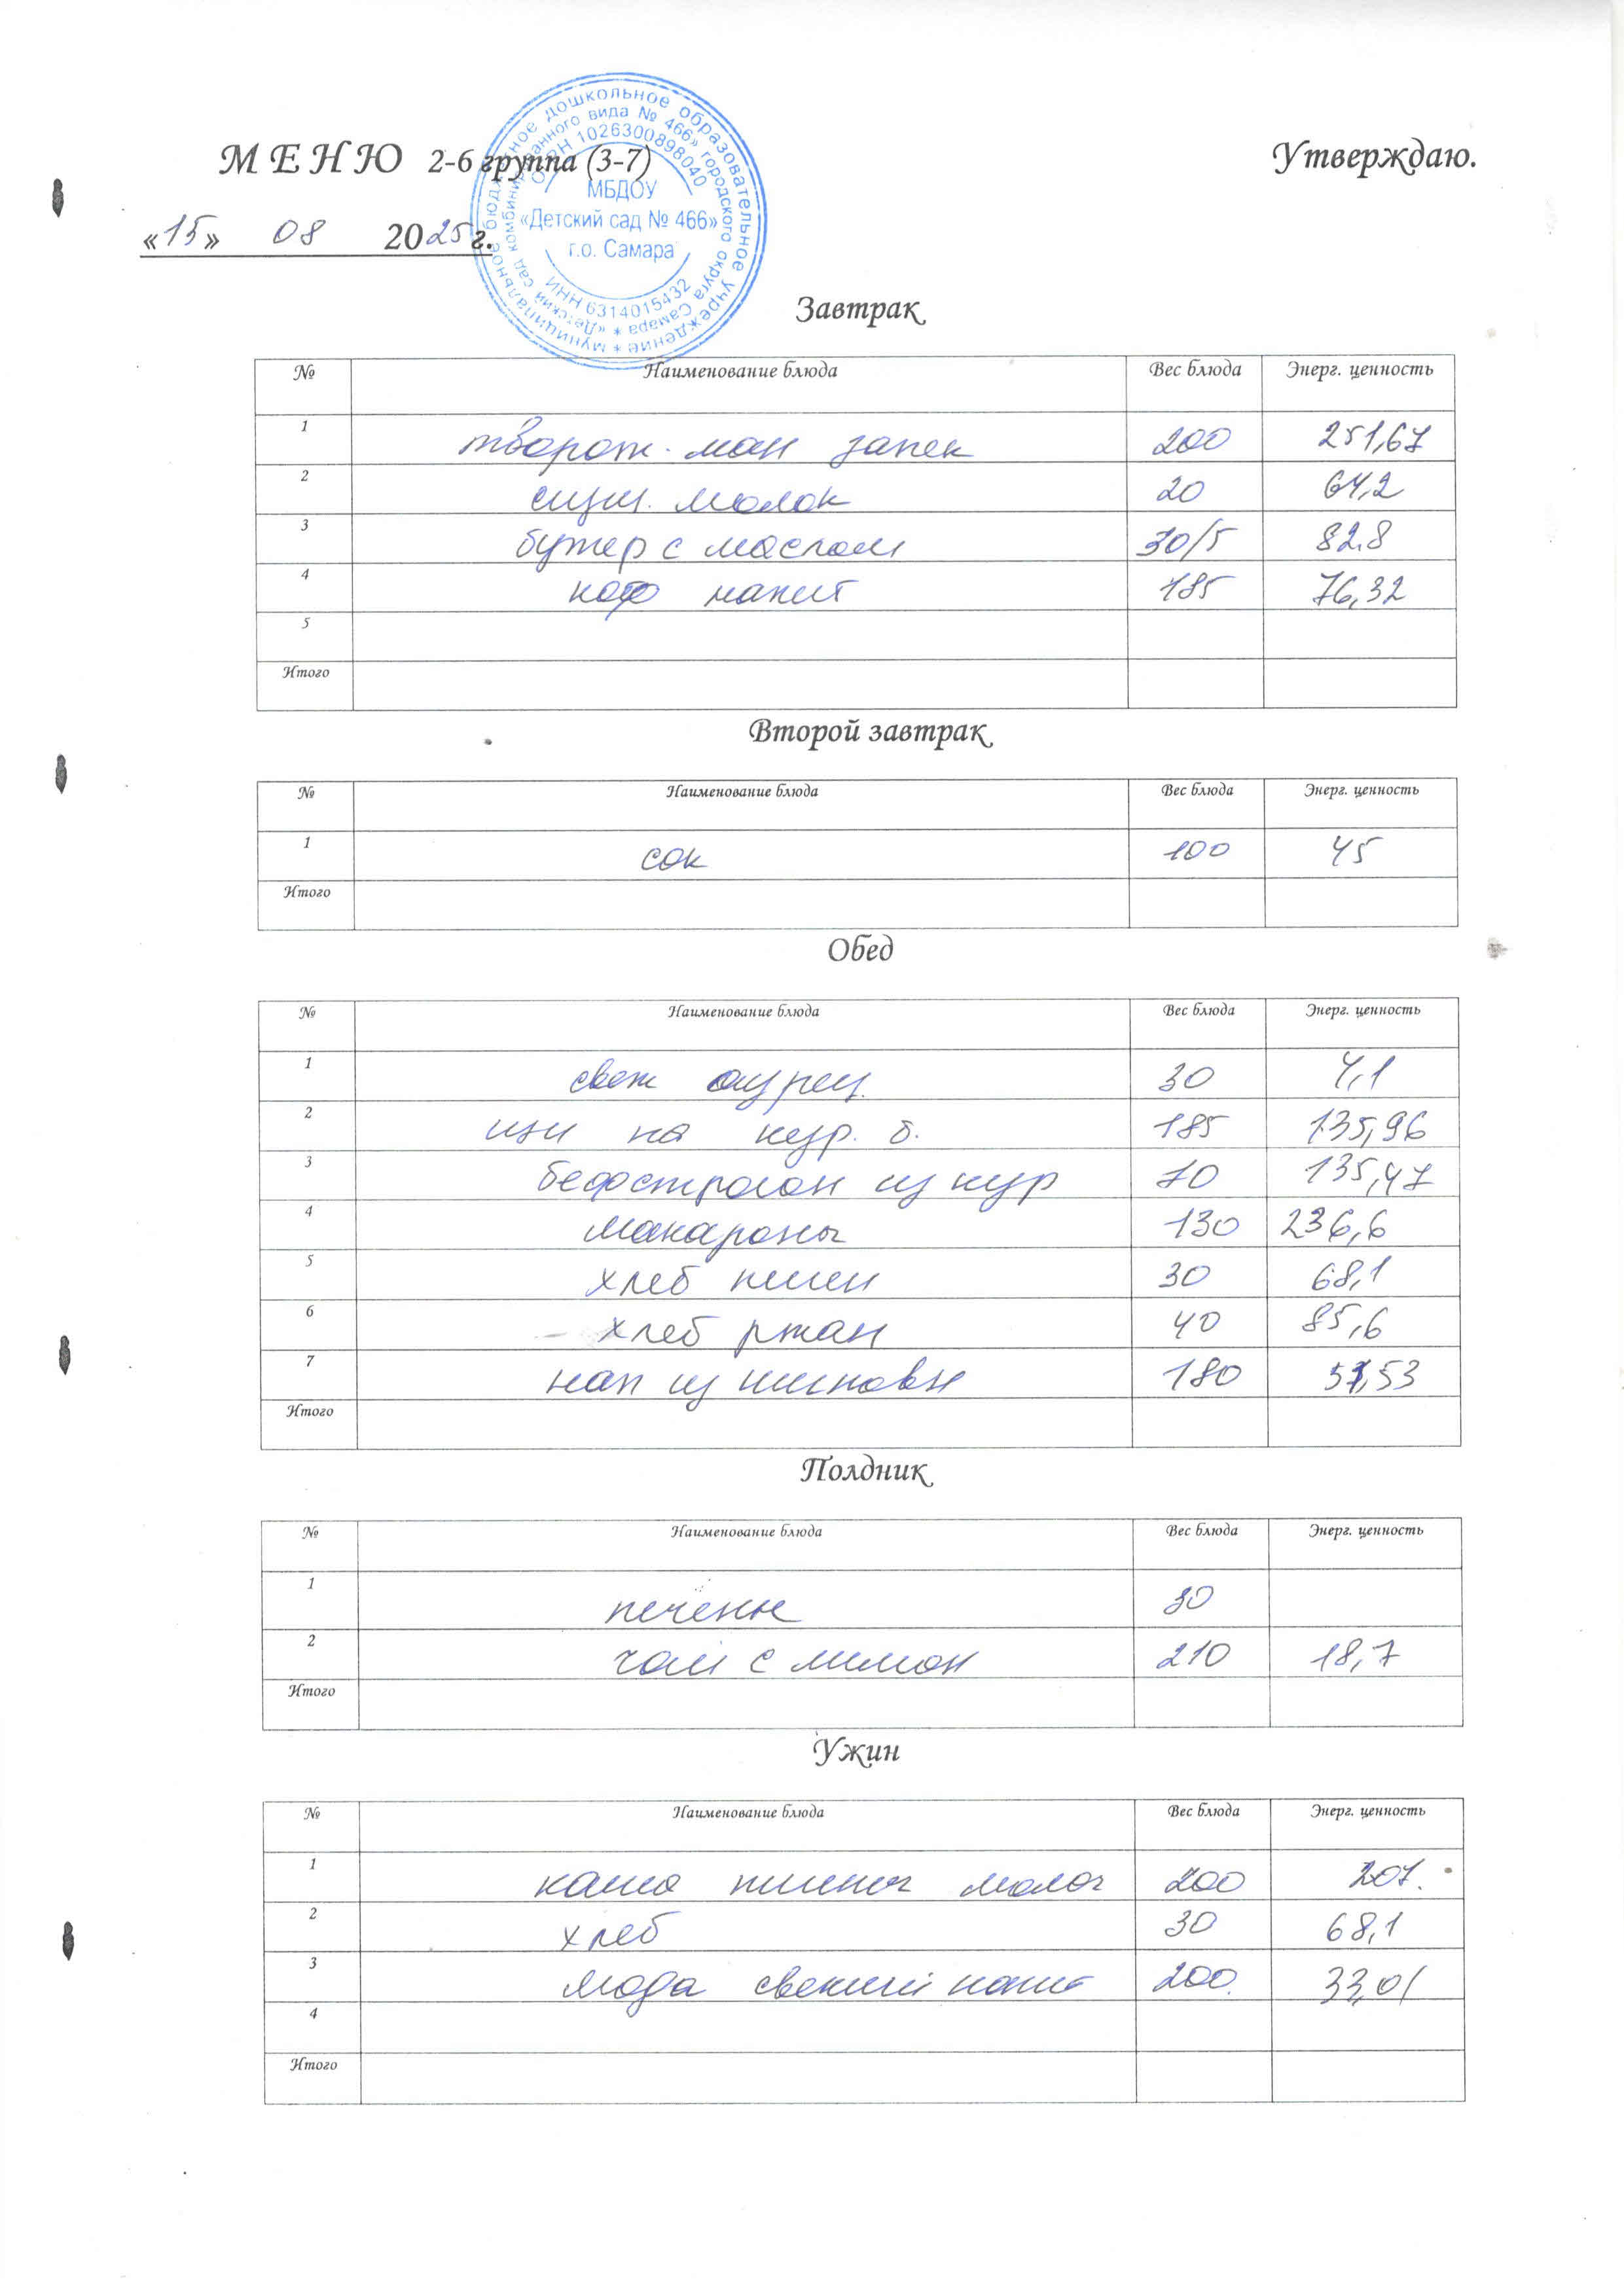 М Е Н Ю 2-6 группа (3-7)
Утверждаю.
«15» 08 2025 г.
муниципальное бюджетное дошкольное образовательное учреждение *
«Детский сад комбинированного вида № 466» городского округа Самара *
ОГРН 1026300898040
МБДОУ
«Детский сад № 466»
г.о. Самара
ИНН 6314015432
Завтрак
№ Наименование блюда Вес блюда Энерг. ценность
1 творож. ман запек 200 251,67
2 сгущ. молок 20 64,2
3 бутер с маслом 30/5 82.8
4 кофе напит 185 76,32
5
Итого
Второй завтрак
№ Наименование блюда Вес блюда Энерг. ценность
1 сок 100 45
Итого
Обед
№ Наименование блюда Вес блюда Энерг. ценность
1 свеж огурец. 30 4,1
2 щи на кур. б. 185 135,96
3 бефстроган из кур 70 135,47
4 макароны 130 236,6
5 хлеб пшен 30 68,1
6 хлеб ржан 40 85,6
7 нап из шиповн 180
Итого
Полдник
№ Наименование блюда Вес блюда Энерг. ценность
1 печенье 30
2 чай с лимон 210 18,7
Итого
Ужин
№ Наименование блюда Вес блюда Энерг. ценность
1 каша пшенич молоч 200 207.
2 хлеб 30 68,1
3 200. 33,01
4
Итого